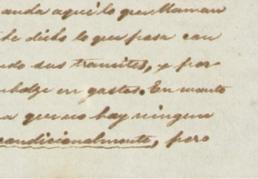 anda aquí lo que llaman
he dicho lo que pasa con
do sus transites, y por
en gastos. En cuanto
a que no hay ningun
condicionalmente, pero